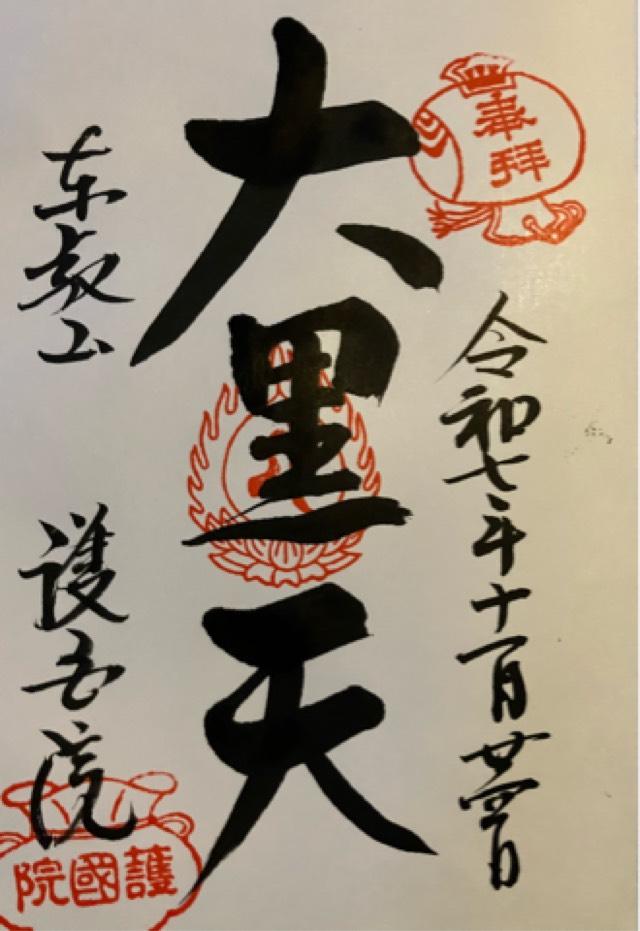 奉拝
令和七年十一月廿四日
大黒天
东叡山
護国院
護國院